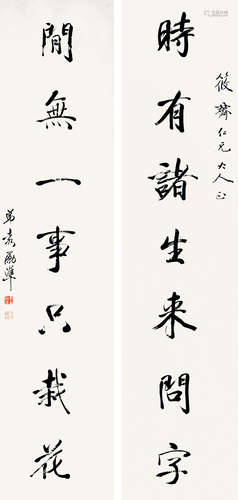 時有諸生来問字
筱齋仁兄大人正
閒無一事只栽花
弟袁勵準